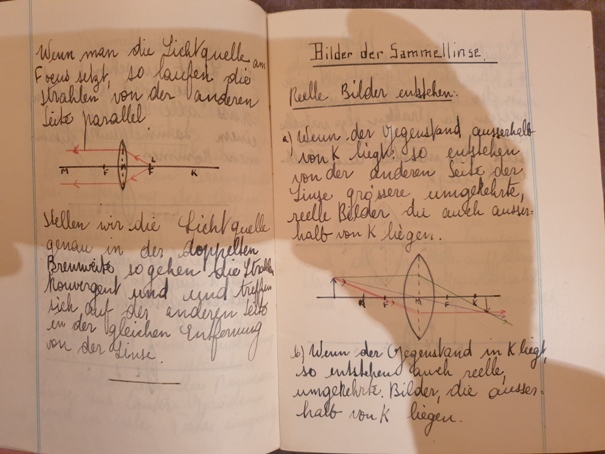 Wenn man die Lichtquelle am
Focus setzt, so laufen die
strahlen von der anderen
Seite parallel.
M F L F K
Stellen wir die Lichtquelle
genau in der doppelten
Brennweite, so gehen die Strahlen
konvergent und und treffen
sich auf der anderen Seite
in der gleichen Entfernung
von der Linse.
Bilder der Sammellinse.
Reelle Bilder entstehen:
a) Wenn der Gegenstand ausserhalb
von K liegt: so entstehen
von der anderen Seite der
Linse grössere umgekehrte,
reelle Bilder die auch ausser-
halb von K liegen.
K F F K
b) Wenn der Gegenstand in K liegt,
so entstehen auch reelle,
umgekehrte Bilder, die ausser-
halb von K liegen.